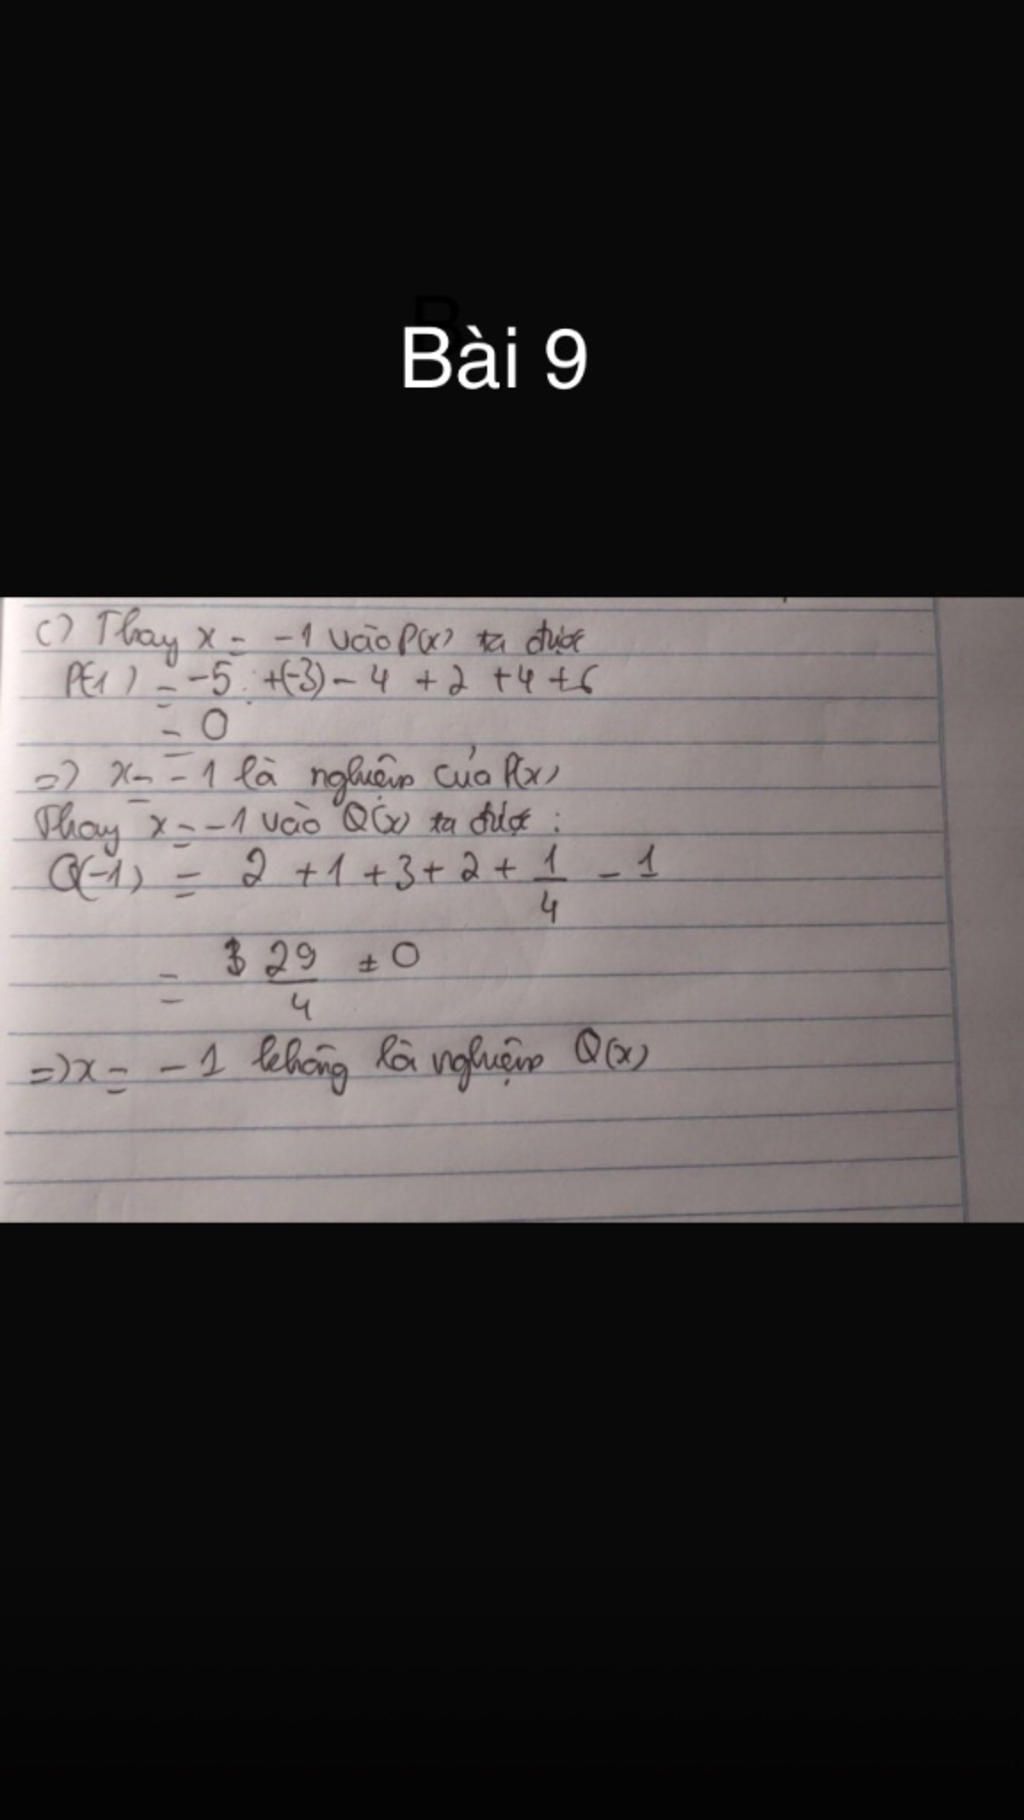 Bài 9
c) Thay x = -1 vào P(x) ta được
P(-1) = -5 +(-3) - 4 + 2 + 4 + 6
= 0
=> x = -1 là nghiệm của P(x)
Thay x = -1 vào Q(x) ta được :
Q(-1) = 2 + 1 + 3 + 2 + 1/4 - 1
= 29/4 ≠ 0
=> x = -1 không là nghiệm Q(x)